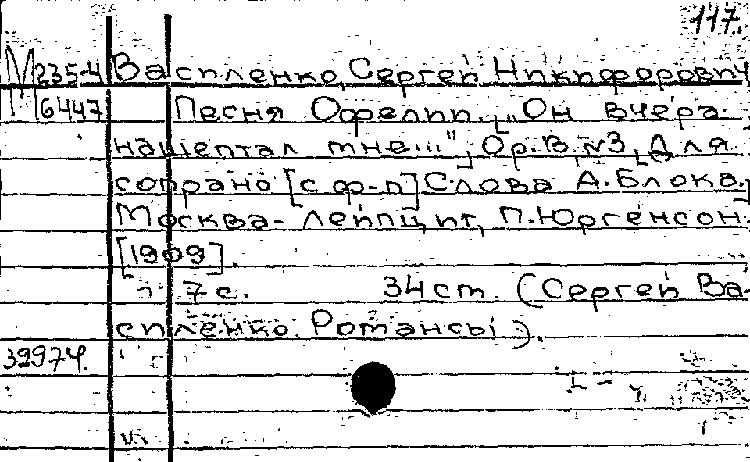 117.
М 235-4 Василенко, Сергей Никифорович
М 6447 Песня Офелии. „Он вчера
нашептал мне..." Op. В, №3, Для
сопрано [с ф-п] Слова А. Блока.
Москва-Лейпциг, П. Юргенсон.
[1909].
7 с. 34 ст. (Сергей Ва-
силенко. Романсы).
32974.